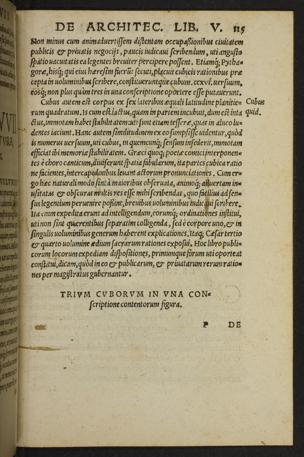 DE ARCHITEC. LIB. V. 115
Non minus cum animaduertissem distentam occupationibus ciuitatem
publicis & priuatis negocijs, paucis iudicaui scribendum, uti angusto
spatio uacuitatis ea legentes breuiter percipere possent. Etiamq; Pythagoræ,
hisq; qui eius hæresim fuerunt secuti, placuit cubicis rationibus præ
cepta in uoluminibus scribere, constituerunt´que cubum. ccxvi. uersuum,
eosq; non plus quam tres in una conscriptione oportere esse putauerunt.
Cubus autem est corpus ex sex lateribus æquali latitudine planitie-
rum quadratum. is cum est iactus, quam in partem incubuit, dum est inta
Cubus quid.
ctus, immotam habet stabilitatem: uti sunt etiam tesseræ, quas in alueo lu-
dentes iaciunt. Hanc autem similitudinem ex eo sumpsisse uidentur, quòd
is numerus uersuum, uti cubus, in quemcunq; sensum insederit, immotam
efficiat ibi memoriæ stabilitatem. Græci quoq; poetæ comici interponen-
tes è choro canticum, diuiserunt spatia fabularum, ita partes cubica ratio
ne facientes, intercapedinibus leuant actorum pronunciationes. Cum er-
go hæc naturali modo sint à maioribus obseruata, animoq; aduertam in-
usitatas & obscuras multis res esse mihi scribendas, quo facilius ad sen-
sus legentium peruenire possint, breuibus uoluminibus iudicaui scribere.
Ita enim expedita erunt ad intelligendum, eorumq; ordinationes institui,
uti non sint quærentibus separatim colligenda, sed è corpore uno, & in
singulis uoluminibus generum haberent explicationes. Itaq; Cæsar tertio
& quarto uolumine ædium sacrarum rationes exposui. Hoc libro publi-
corum locorum expediam dispositiones, primumque forum uti oporteat
constitui, dicam, quòd in eo & publicarum, & priuatarum rerum ratio-
nes per magistratus gubernantur.
TRIVM CVBORVM IN VNA CON-
scriptione contentorum figura.
P DE